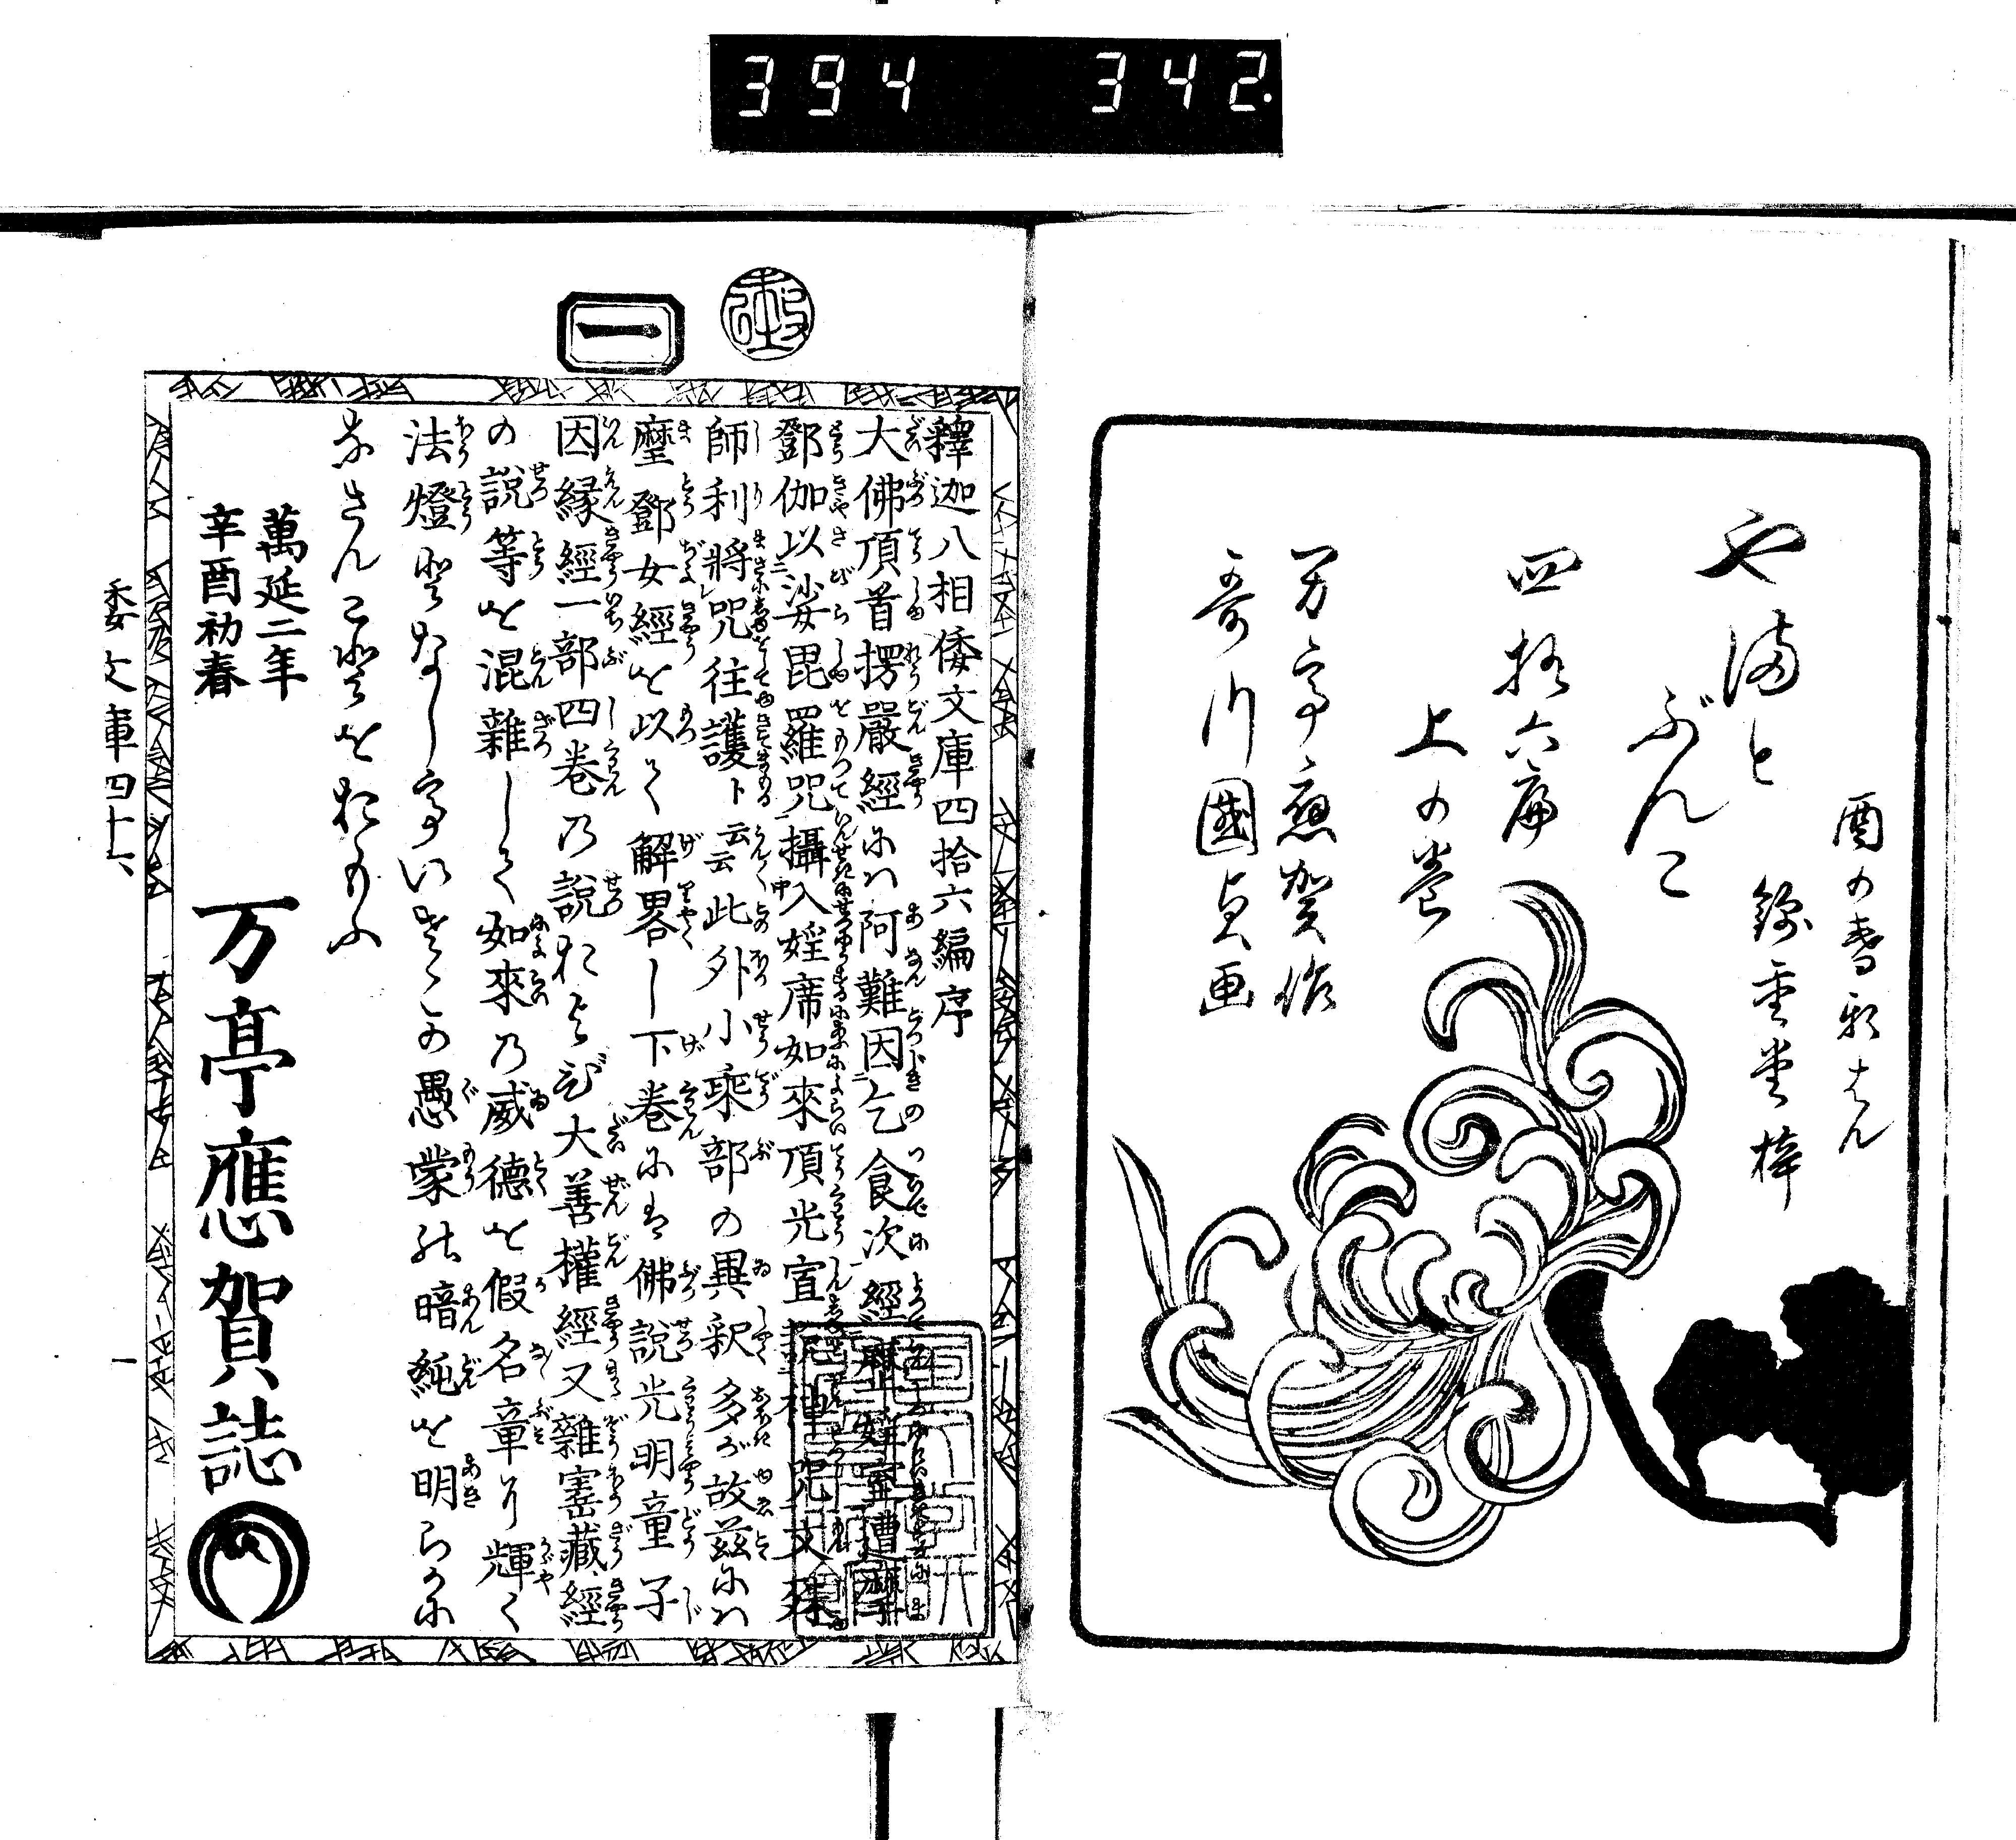 394 342.
酉の春新はん
錦重堂梓
やまと
ぶんこ
四拾六扁
上の巻
万亭應賀作
哥川國貞画
一
釋迦八相倭文庫四拾六編序
大佛頂首楞嚴經にハ阿難因乞食次經歷婬室遭摩
鄧伽以娑毘羅咒攝入婬席如來頂光宣說神咒文殊
師利將咒往護云云此外小乘部の異釈多が故茲にハ
摩鄧女經を以て解畧し下巻には佛說光明童子
因縁經一部四巻乃說および大善權經又雜寳藏經
の說等を混雜して如來乃威德を假名章に輝く
法燈となし高いきこの愚蒙の暗純を明らかに
なさんことをおもふ
萬延二年
辛酉初春
万亭應賀誌
倭文庫四十六
一